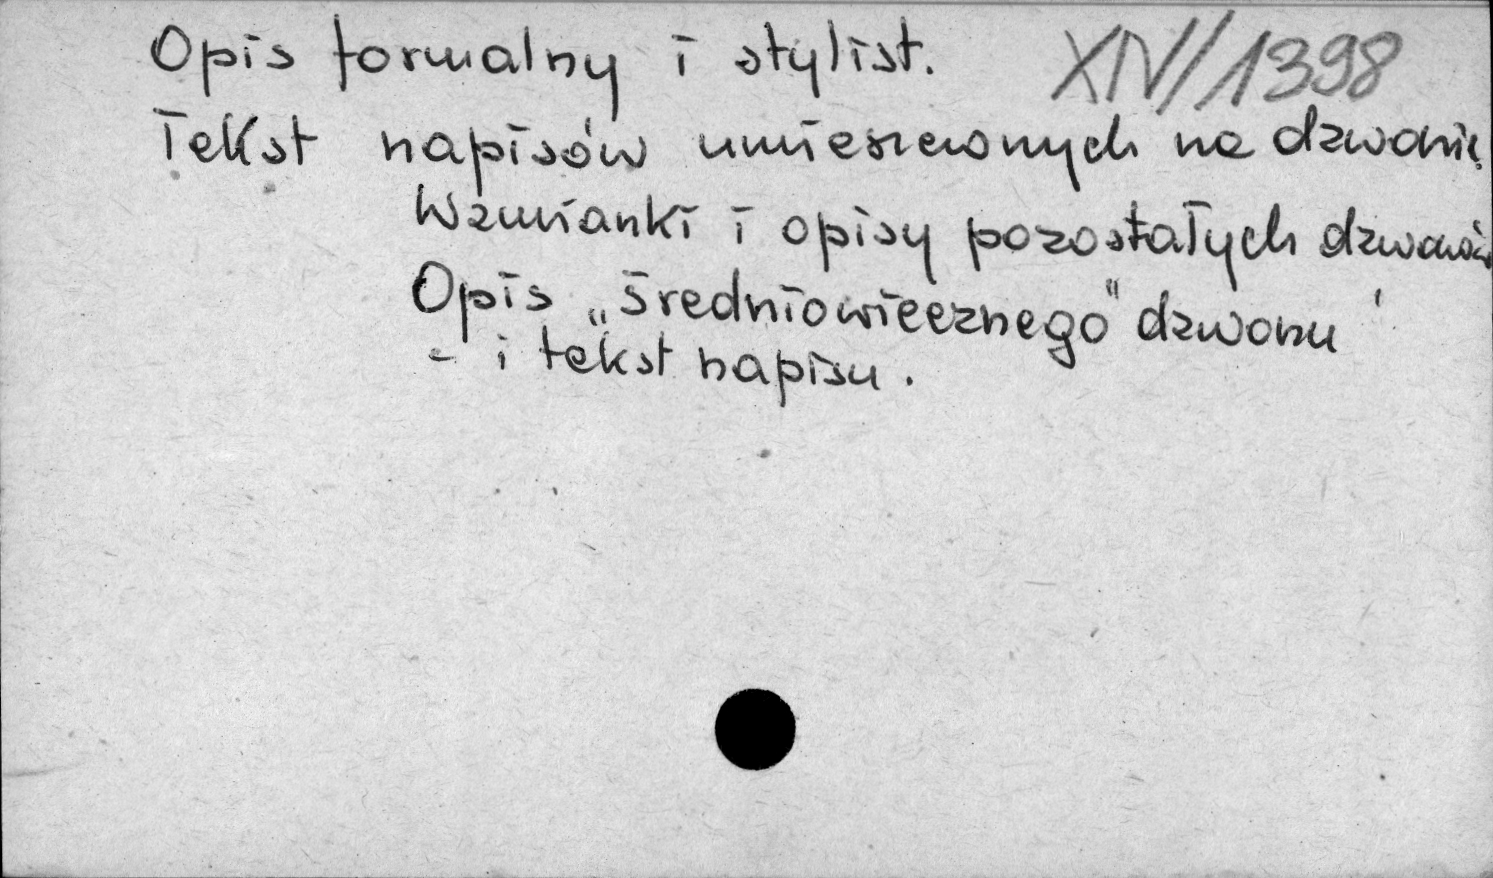 Opis formalny i stylist. XIV/1398
Tekst napisów umieszczonych na dzwonie
Wzmianki i opisy pozostałych dzwonów
Opis „średniowiecznego" dzwonu
- i tekst napisu.